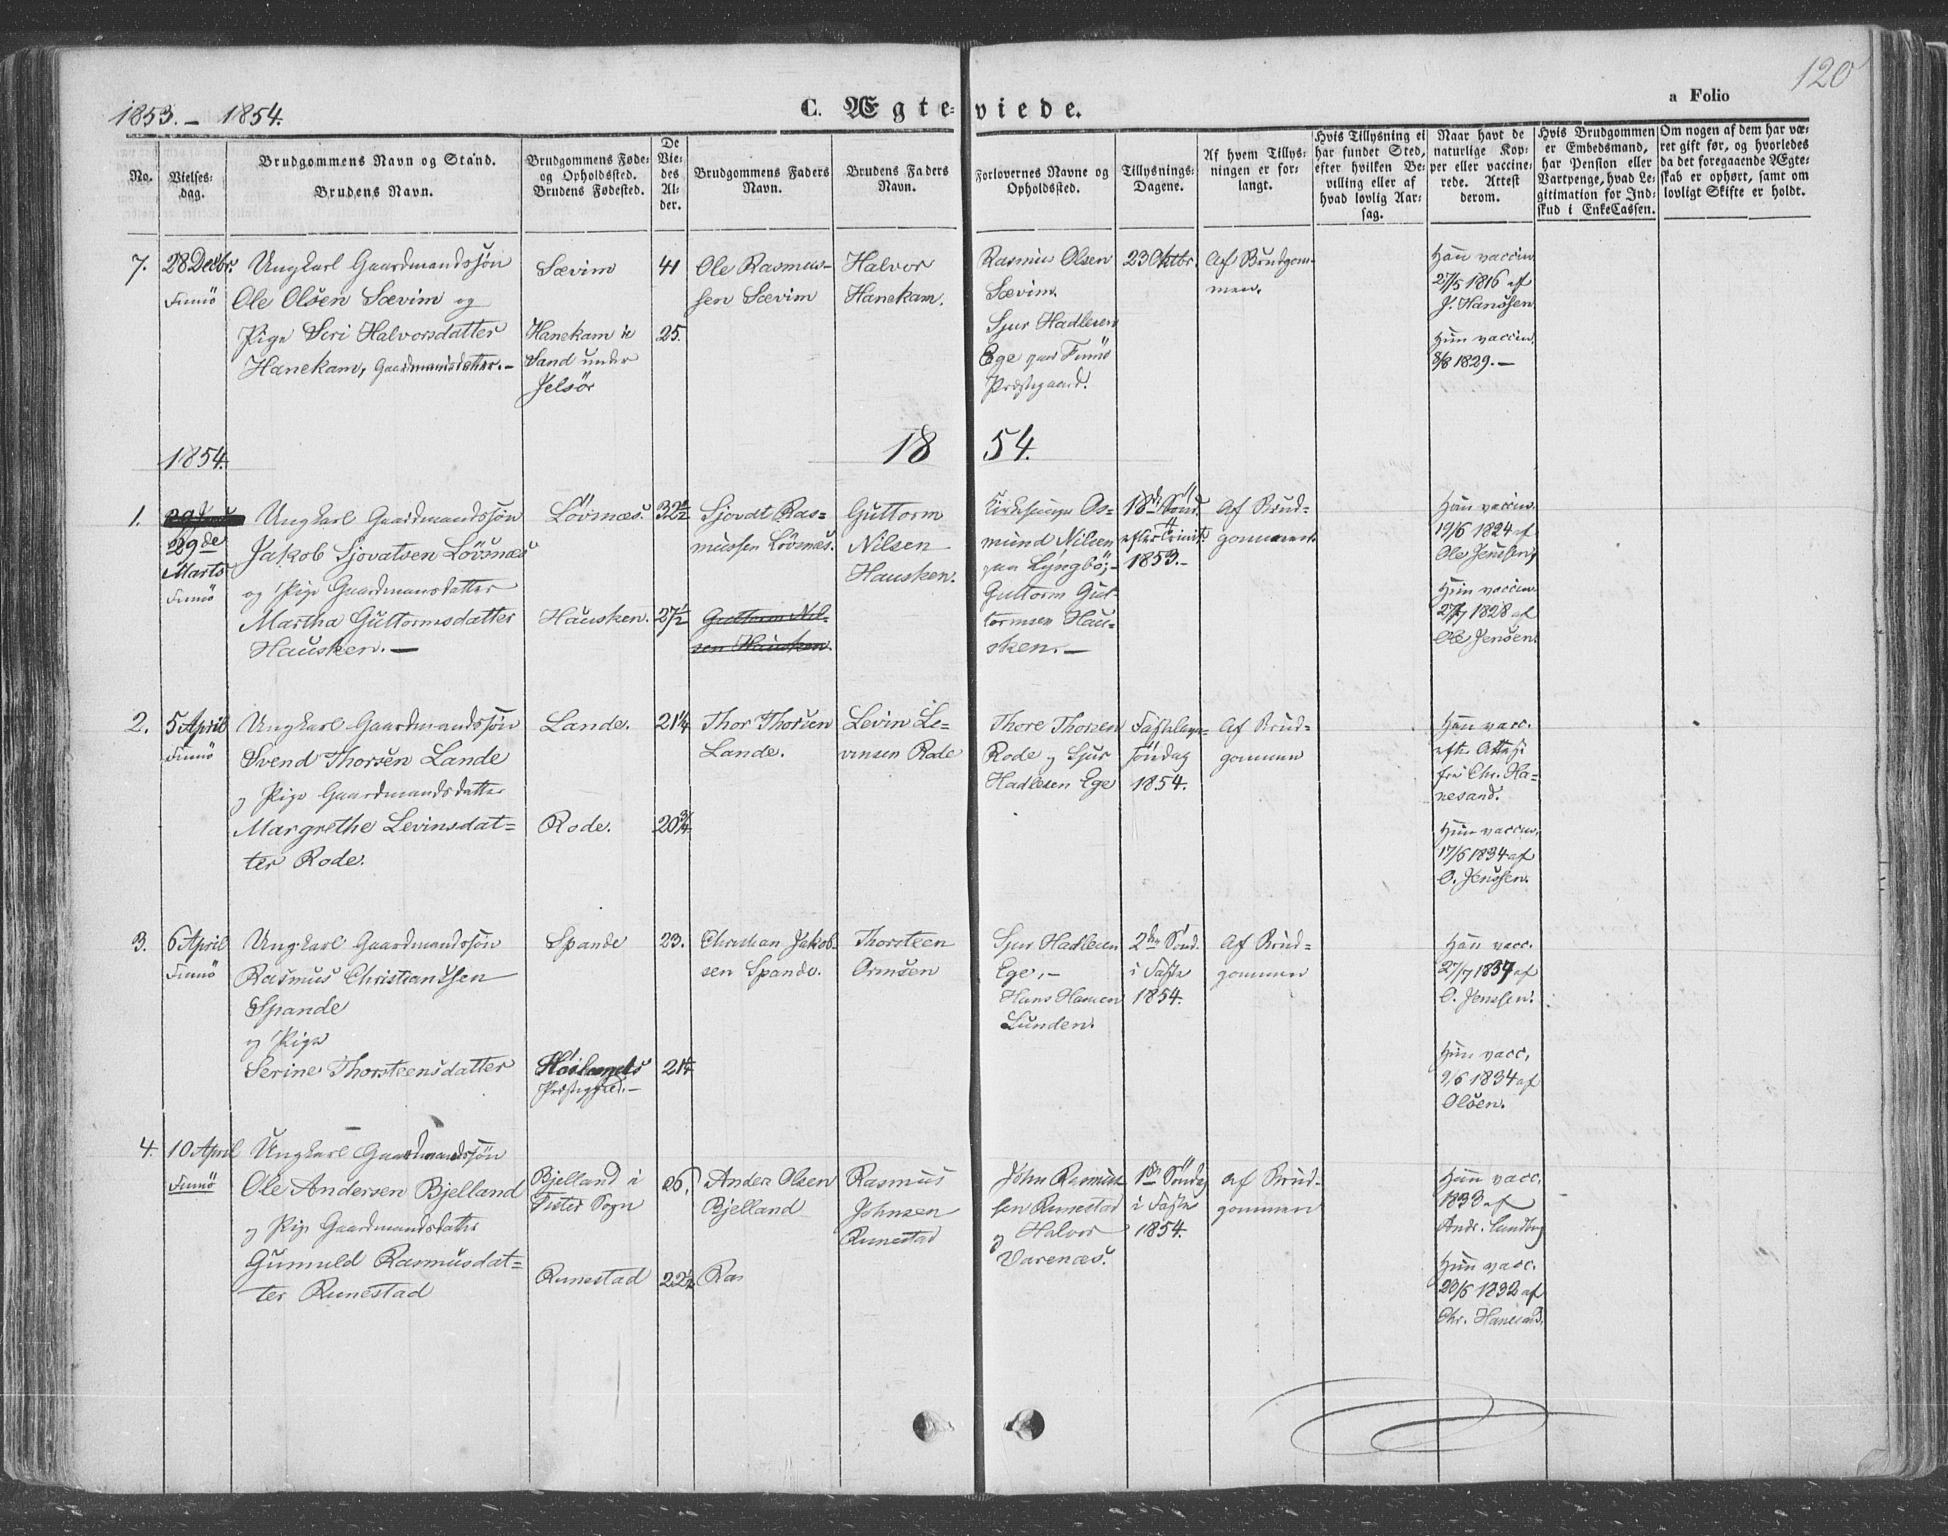 120
1853. – 1854.
C. Ægteviede.
a Folio
No.
Vielses-
dag.
Brudgommens Navn og Stand.
Brudens Navn.
Brudgommens Føde-
og Opholdssted.
Brudens Fødested.
De
Vie-
des
Al-
der.
Brudgommens Faders
Navn.
Brudens Faders
Navn.
Forlovernes Navne og
Opholdssted.
Tillysnings-
Dagene.
Af hvem Tillys-
ningen er for-
langt.
Hvis Tillysning ei
har fundet Sted,
efter hvilken Be-
villing eller af
hvad lovlig Aar-
sag.
Naar havt de
naturlige Kop-
per eller vaccine-
rede. Attest
derom.
Hvis Brudgommen
er Embedsmand,
har Pension eller
Vartpenge, hvad Le-
gitimation for Ind-
skud i EnkeCassen.
Om nogen af dem har væ-
ret gift før, og hvorledes
da det foregaaende Ægte-
skab er ophørt, samt om
lovligt Skifte er holdt.
7.
28 Decbr.
Finnö
Ungkarl Gaardmandssön
Ole Olsen Sævim og
Pige Siri Halvorsdatter
Hanekam, Gaardmandsdatter. –
Sævim
Hanekam i
Sand under
Jelsör
41
25.
Ole Rasmus-
sen Sævim
Halvor
Hanekam.
Rasmus Olsen
Sævim.
Sjur Hadlesen
Ege paa Finnö
Præstegaard.
23 Oktbr.
Af Brudgom-
men.
Han vaccin.
27/5 1816 af
J. Hanssen
Hun vaccin.
8/8 1829. –
1854.
1854.
1.
29de
Marts
Finnö
Ungkarl Gaardmandssön
Jakob Sjovatsen Lövsnæs
og Pige Gaardmansdatter
Martha Guttormsdatter
Hausken. –
Lövsnæs.
Hausken.
32½
27½
Sjovdt Ras-
mussen Lövsnæs.
Guttorm Nil-
sen Hausken.
Guttorm
Nilsen
Hausken.
Kirkesanger Os-
mund Nilsen
paa Lyngbö; –
Guttorm Gut-
tormsen Hau-
sken. –
18de Sönd.
efter Trinit.
1853. –
Af Brud-
gommen.
Han vaccin.
19/6 1824 af
Ole Jenssen,
Hun vaccin.
27/7 1828 af
Ole Jensen.
2.
5 April
Finnö
Ungkarl Gaardmandssön
Svend Thorsen Lande
og Pige Gaardmandsdatter
Margrethe Levinsdat-
ter Rode.
Lande.
Rode.
21¼
20¾
Thor Thorsen
Lande.
Levin Le-
vinsen Rode
Thore Thorsen
Rode og Sjur
Hadlesen Ege
Fastelavn-
söndag
1854.
Af Brud-
gommen
Han vacc.
efter Attest
fra Chr. Ha-
nesand.
Hun vaccin.
17/6 1834 af
O. Jenssen.
3.
6 April
Finnö
Ungkarl Gaardmandssön
Rasmus Christianssen
Spande
og Pige
Serine Thorsteensdatter
Spande
Höilands
Præstegjæld. –
23.
21¼
Christian Jakob-
sen Spande.
Thorsteen
Ormsen
Sjur Hadlesen
Ege, –
Hans Hansen
Lunden.
2den Sönd.
i Faste
1854.
Af Brud-
gommen
Han vacc.
27/7 1837 af
O. Jenssen.
Hun vacc.
9/6 1834 af
Olsen.
4.
10 April
Finnö
Ungkarl Gaardmandssön
Ole Andersen Bjelland
og Pige Gaardmandsdatter
Gunnuld Rasmusdat-
ter Runestad
Bjelland i
Fister Sogn
Runestad
26.
22½
Anders Olsen
Bjelland
Ras
Rasmus
Johnsen
Runestad
John Rasmus-
sen Runestad
og Halvor
Varenæs.
1ste Söndag
i Faste
1854.
af Brud-
gommen
Han vacc.
1833 af
Andr. Lundberg
Hun vacc.
20/6 1832 af
Chr. Hanesand.